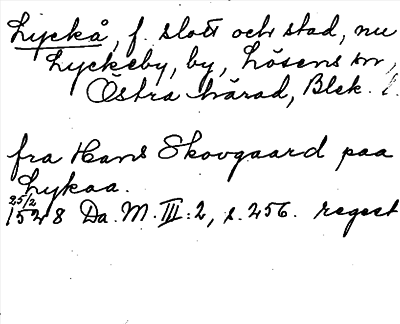 Lyckå, f. slott och stad, nu
Lyckeby, by, Lösens sn,
Östra härad, Blek. l.
fra Hans Skovgaard paa
Lykaa.
25/2
1528 Da. M. III: 2, s. 256. regest